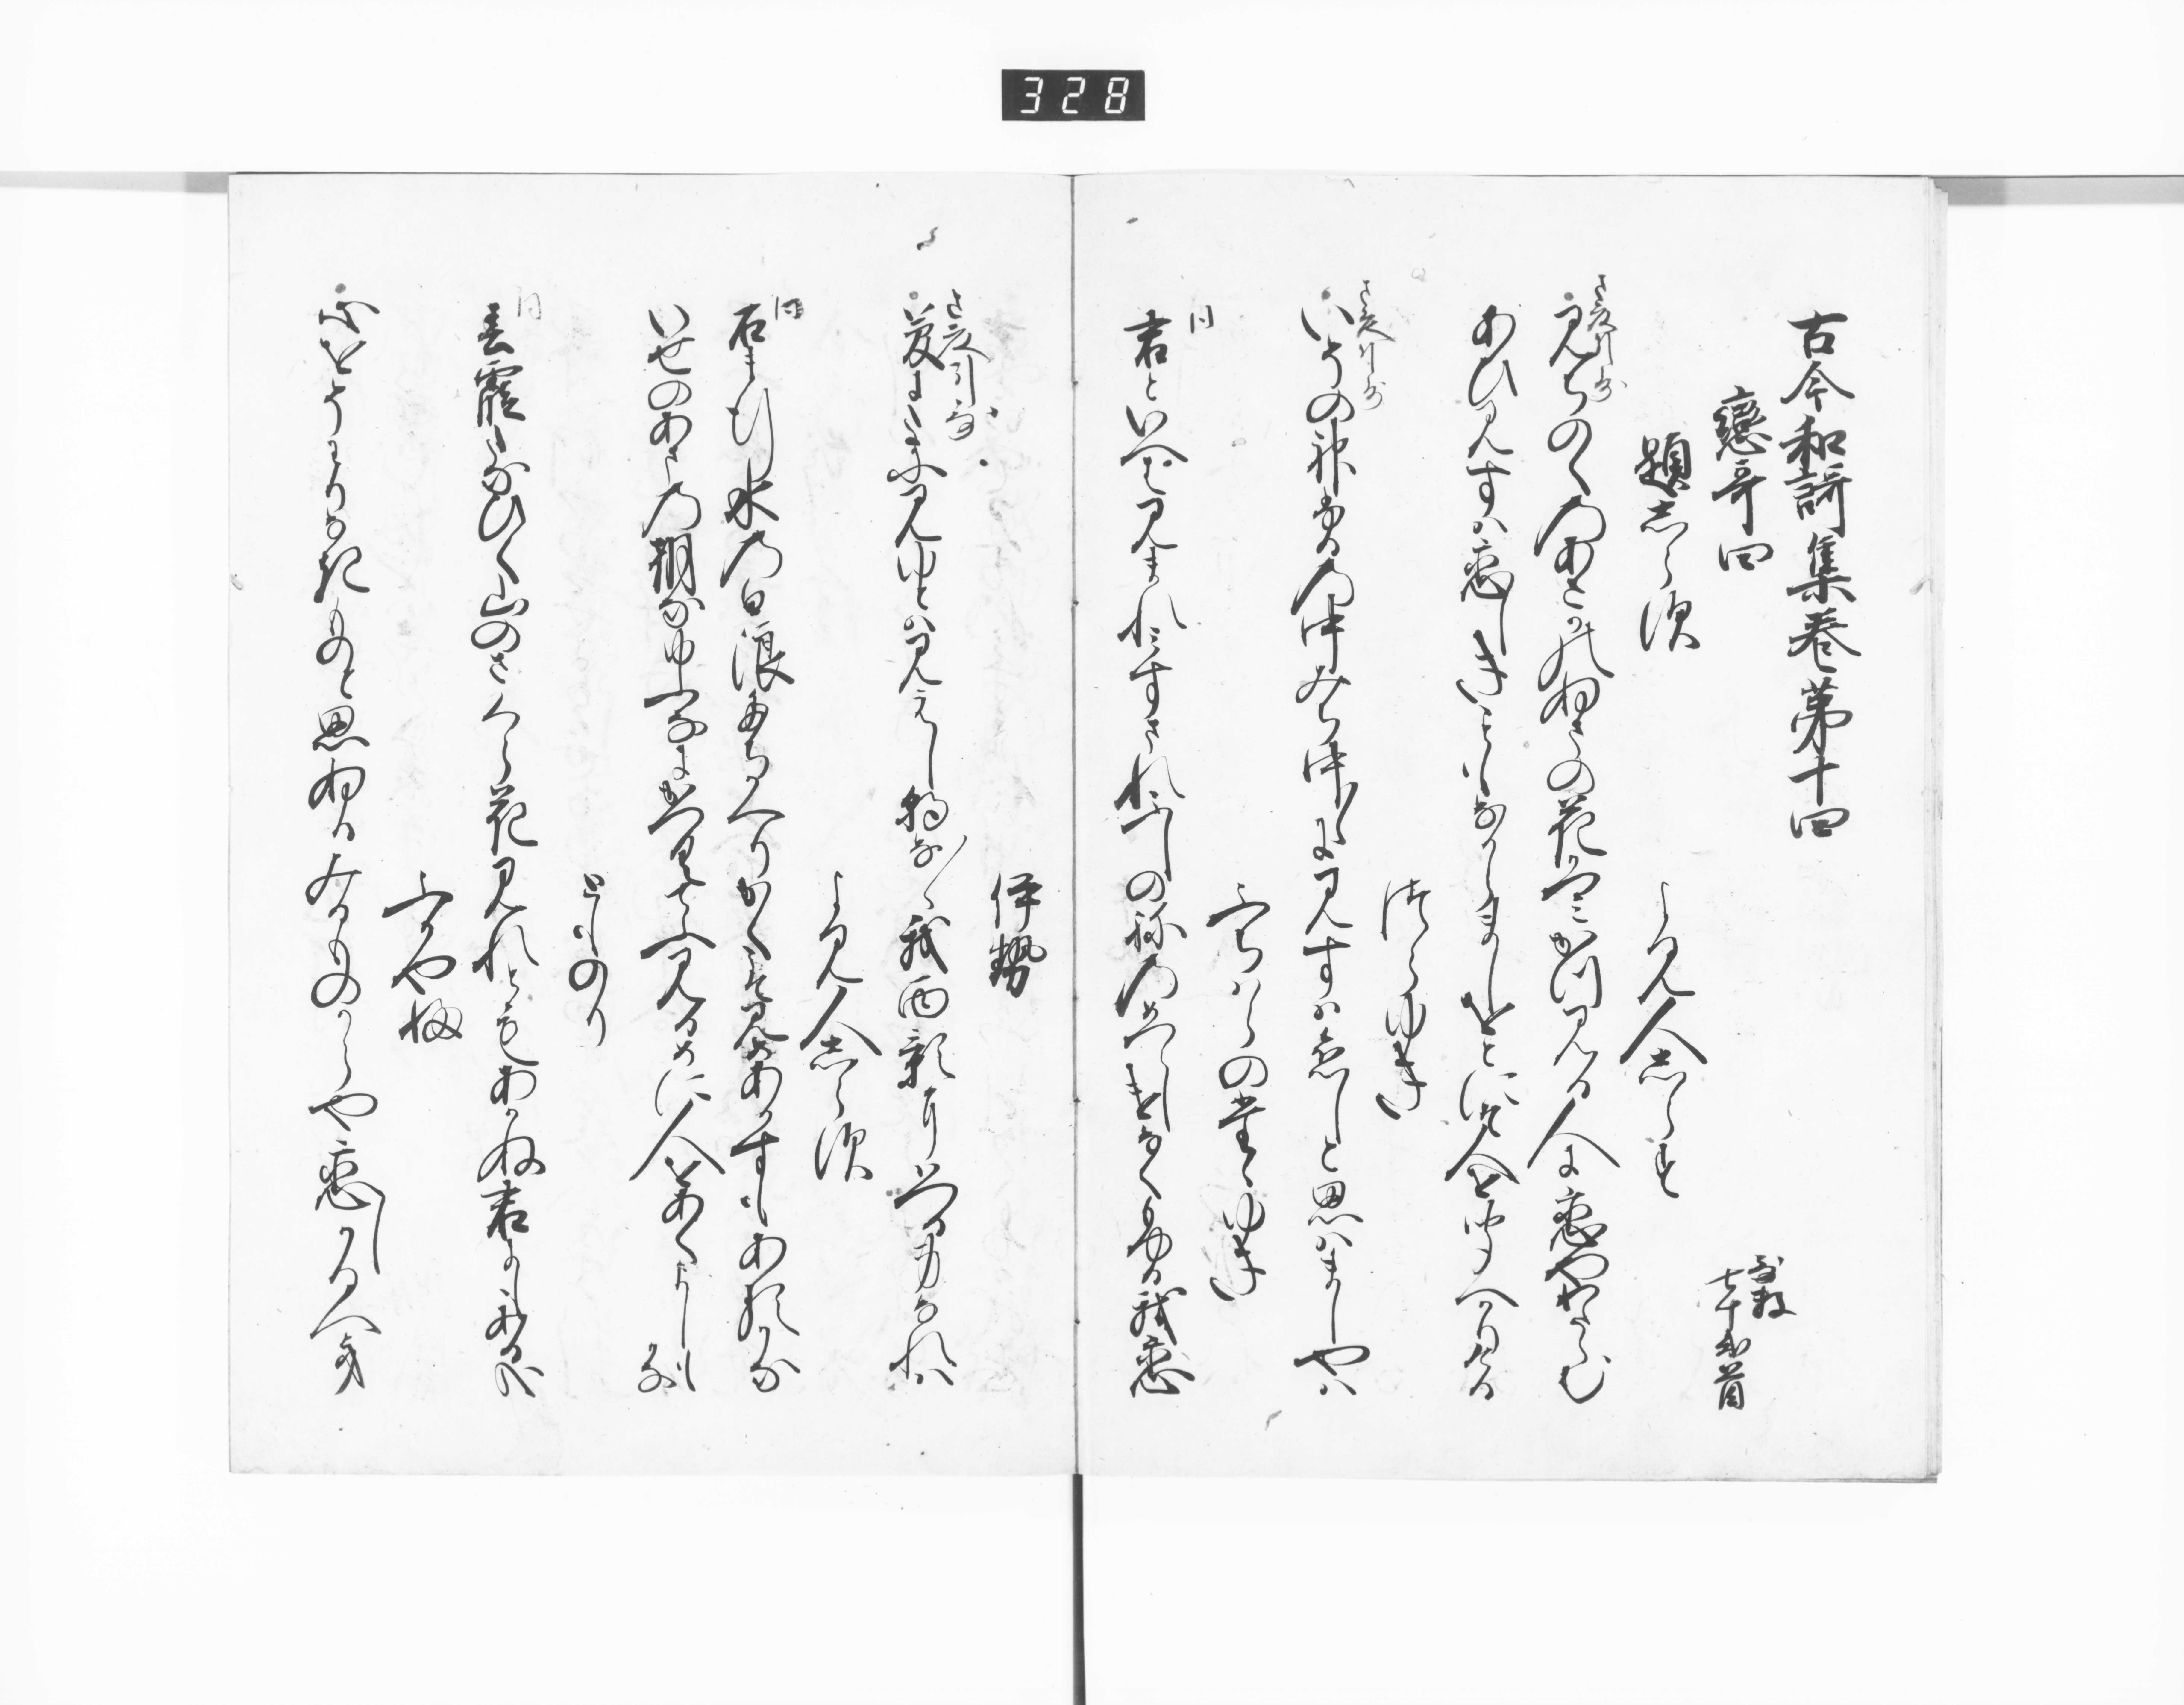 328
古今和謌集巻第十四
戀哥四
題志らす
よみ人志らす
見ちのくのあさかのぬまの花かつみかつ見る人に恋やわたらむ
あひ見すは恋しきこともなからましをとにそ人をきくへかりける
つらゆき
いその神ふるの中みち中／＼に見すは恋しと思はましやは
ふちはらのたゝゆき
君といへは見まれ見すまれふしの祢のめつらしけなくもゆる我恋
伊勢
夢にたに見ゆとは見えし朝な／＼我面影にはつる身なれは
よみ人志らす
石ま行水の白浪立かへりかくこそ見めあかすもあるかな
いせのあまの朝な夕なにかつくてふ見るめに人をあくよしもかな
とものり
春霞たなひく山のさくら花見れともあかぬ君にもあるかな
ふかやふ
心をそわりなき物と思ぬる見るものからや恋しかるへき